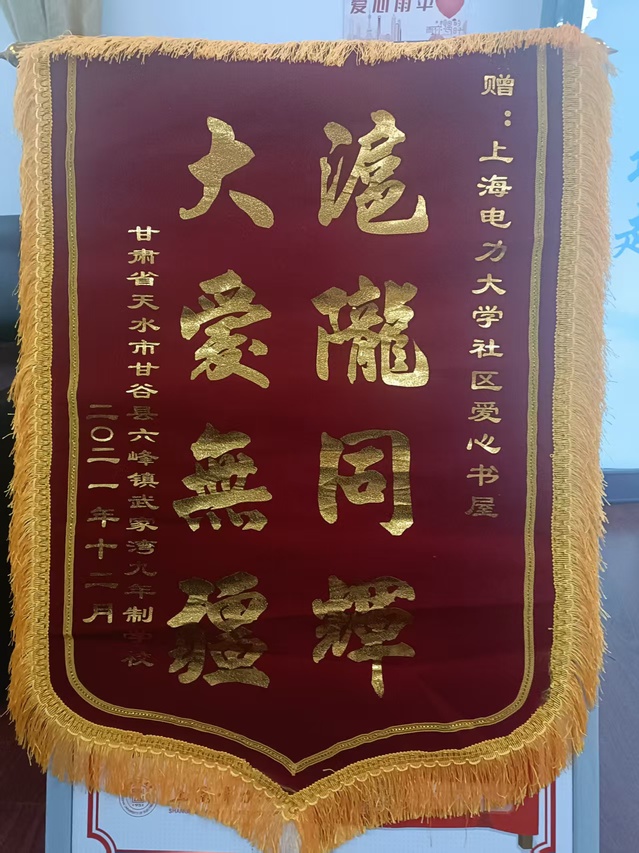 赠：上海电力大学社区爱心书屋
滬隴同輝
大愛無疆
甘肃省天水市甘谷县六峰镇武家湾九年制学校
二〇二一年十二月